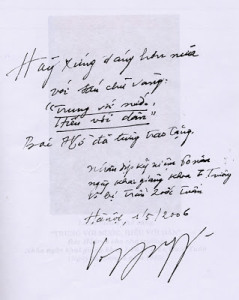 Hãy xứng đáng hơn nữa
với tám chữ vàng:
"Trung với nước,
Hiếu với dân"
Bác Hồ đã từng trao tặng.
Nhân dịp kỷ niệm 60 năm
ngày khai giảng khoá I Trường
Võ bị Trần Quốc Tuấn
Hà Nội, 1/5/2006